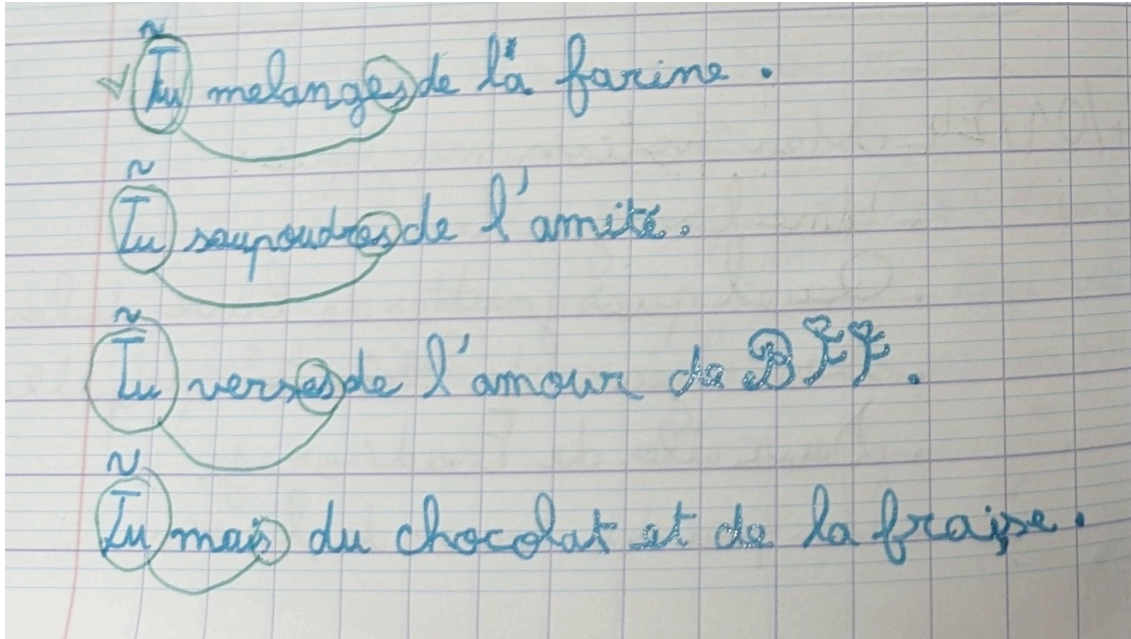 Tu melanges de la farine.
Tu saupoudres de l'amité.
Tu verses de l'amour de BFF.
Tu mais du chocolat et de la fraise.